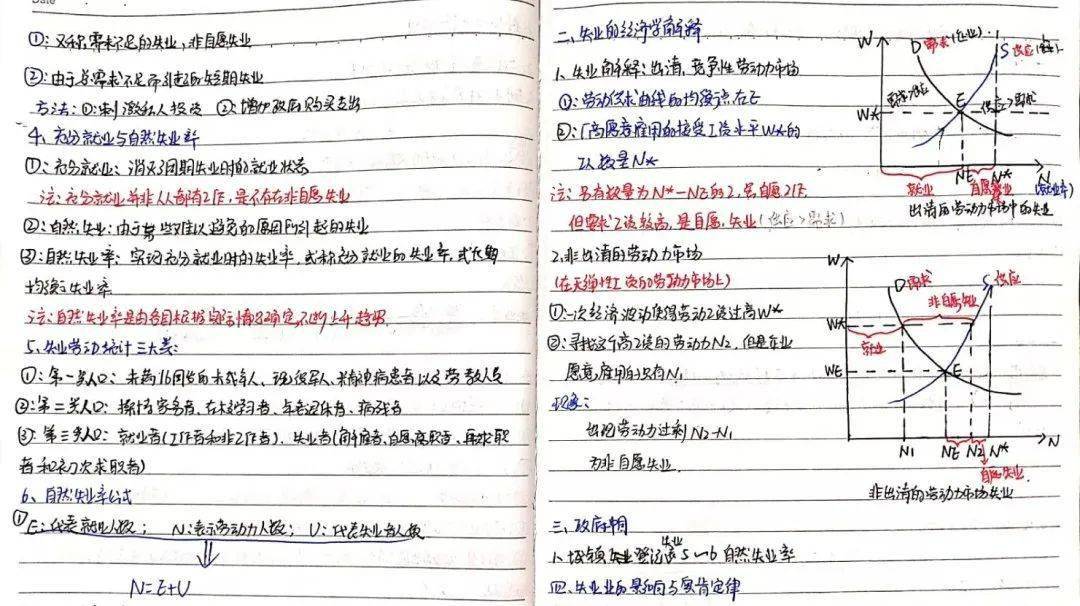 Date
①：又称需求不足的失业，非自愿失业
②：由于总需求不足而引起的短期失业
方法：①：刺激私人投资 ②：增加政府购买支出
4、充分就业与自然失业率
①：充分就业：消灭了周期失业时的就业状态
注：充分就业并非人人都有工作，是不存在非自愿失业
②：自然失业：由于某些难以避免的原因所引起的失业
③：自然失业率：实现充分就业时的失业率，或称充分就业的失业率，或长期
均衡失业率
注：自然失业率是由各国根据实际情况确定，不断上升趋势
5、失业劳动统计三大类：
①：第一类人口：未满16周岁的未成年人、现役军人、精神病患者以及劳教人员
②：第二类人口：操持家务者、在校学习者、年老退休者、病残者
③：第三类人口：就业者(工作者和非工作者)、失业者(解雇者、自愿离职者、再求职
者和初次求职者)
6、自然失业率公式
①E：代表就业人数； N：表示劳动力人数； U：代表失业者人数
N=E+U
二、失业的经济学解释
1、失业的解释：出清，竞争性劳动力市场
①：劳动供求曲线的均衡点在E
②：厂商愿意雇用的接受工资水平W*的
数量N*
注：另有数量为N*-NE的工，虽自愿工作
但要求工资较高，是自愿失业(供应>需求)
W
D需求(企业)
S供应
需求>供应
E
供应>需求
W*
NE N* N
就业 自愿失业 (就业率)
出清的劳动力市场中的失业
2、非出清的劳动力市场
(在无弹性工资的劳动力市场上)
①：一次经济波动使得劳动工资过高W*
②：寻找这个高工资的劳动力N2，但是企业
愿意雇用的只有N1
现象：
出现劳动力过剩N2-N1
为非自愿失业
W
D需求
S供应
非自愿失业
W*
就业
WE
E
N1 NE N2 N* N
自愿失业
非出清的劳动力市场失业
三、政府
1、城镇失业登记 失业 5~6 自然失业率
四、失业的影响与奥肯定律